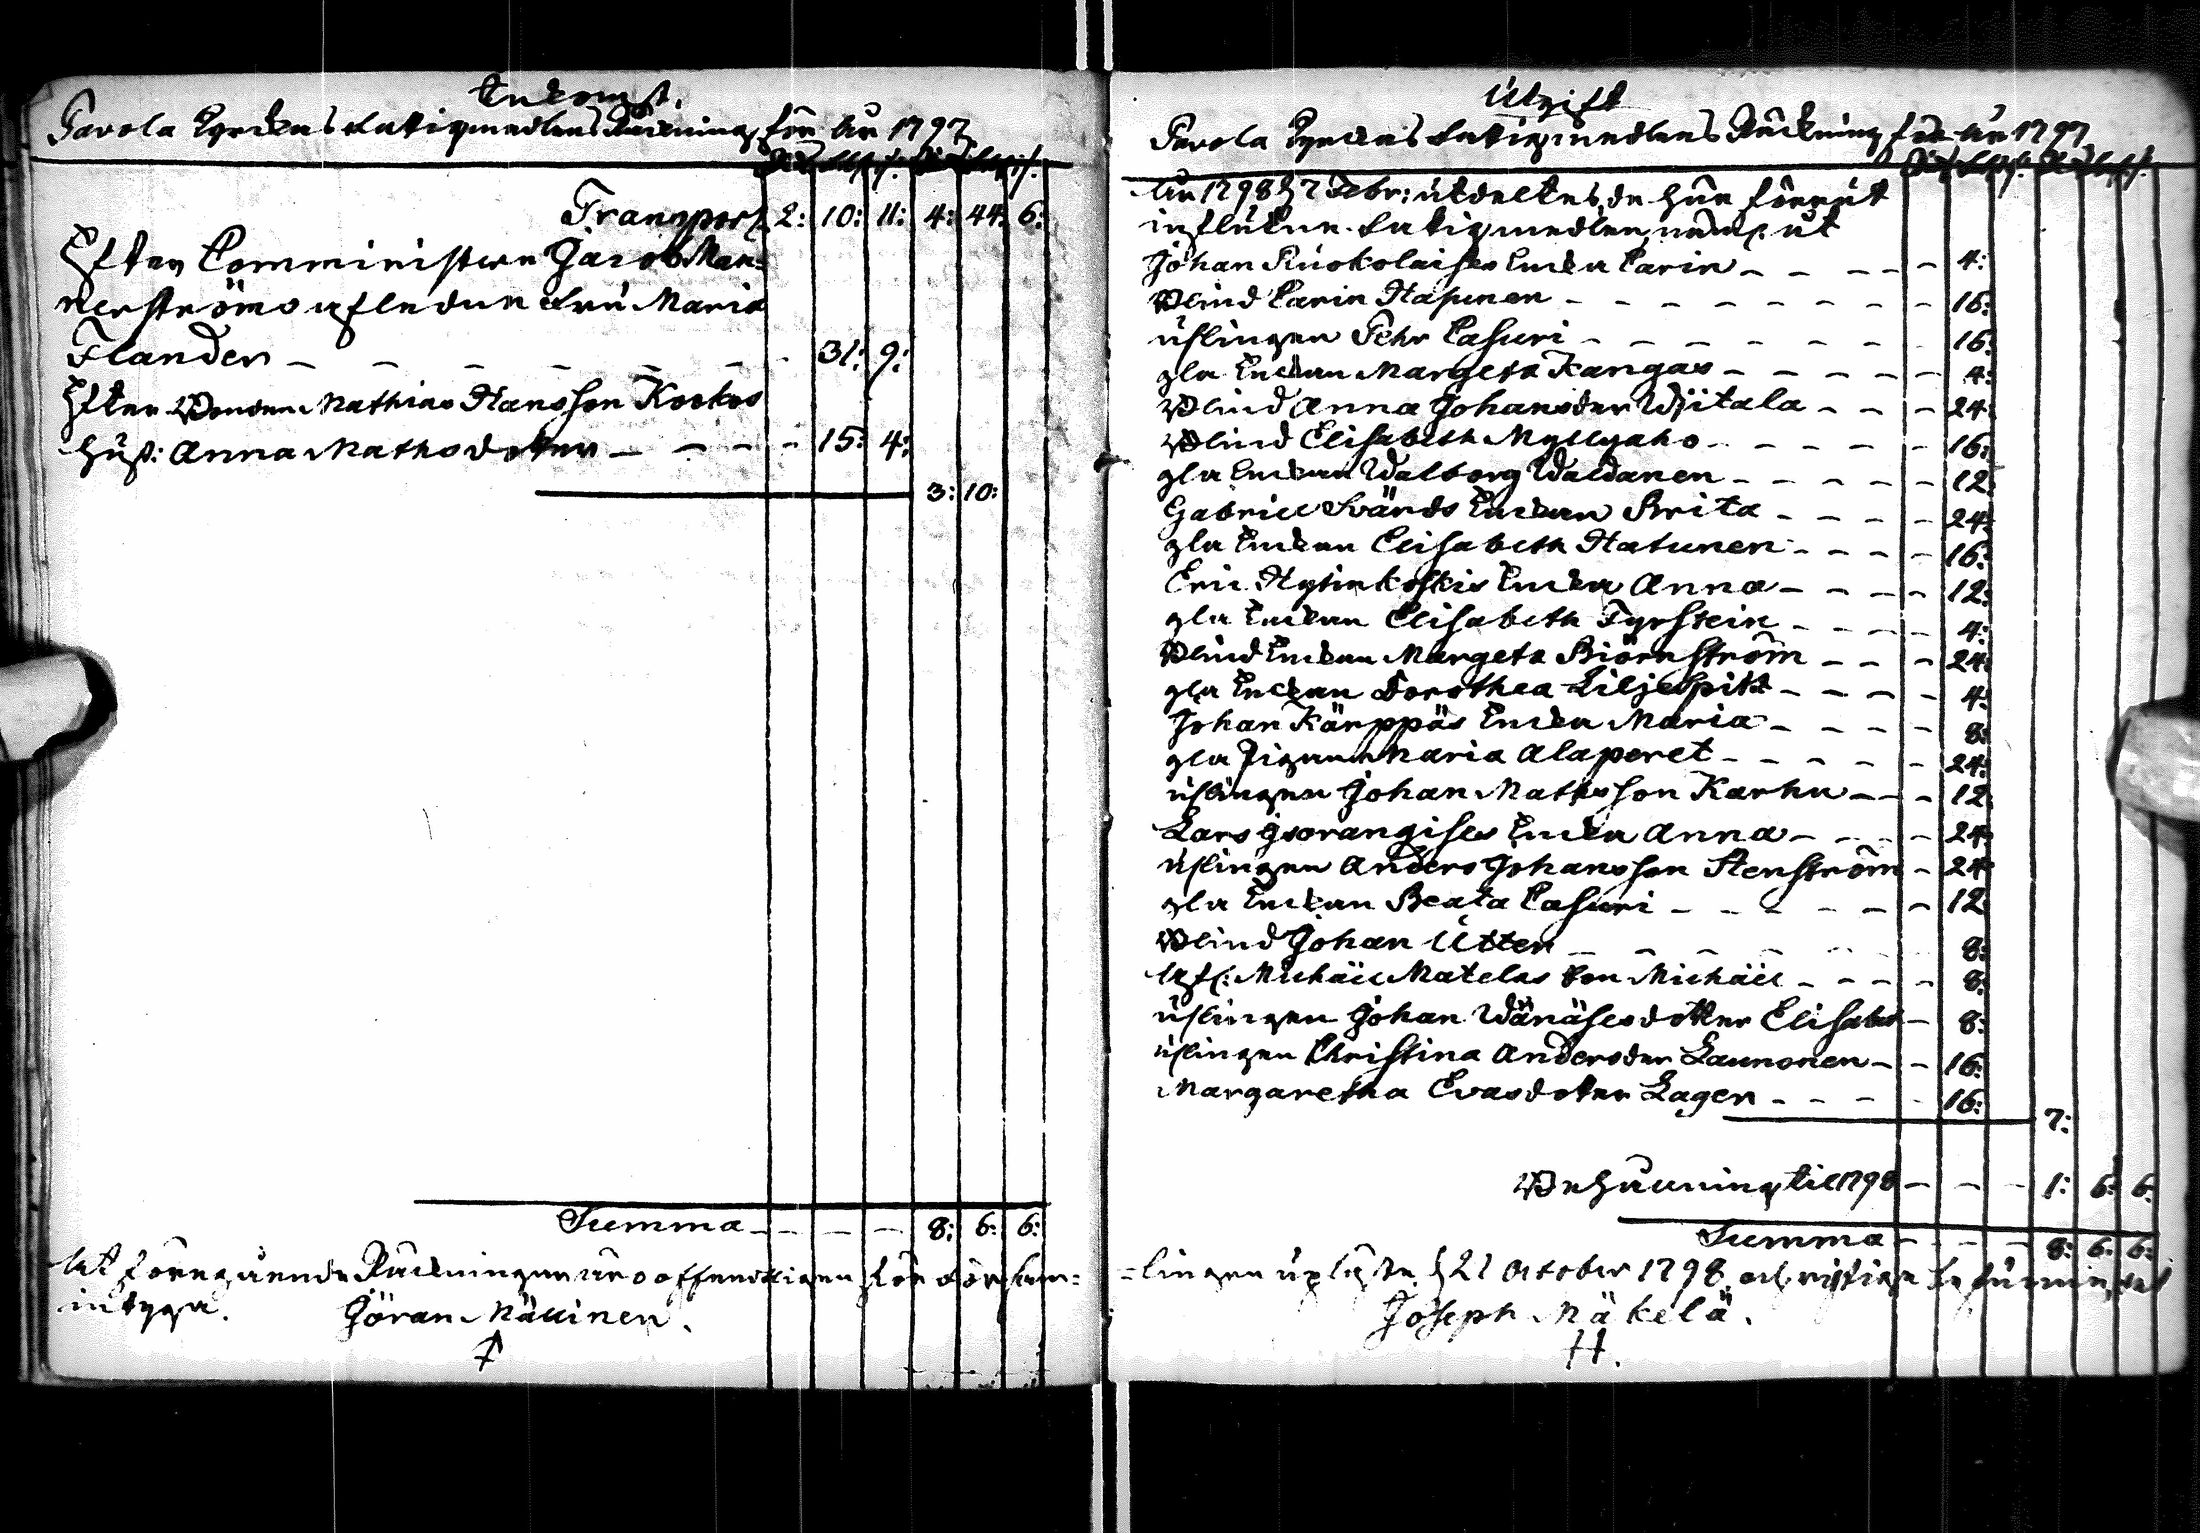 Inkomst.
Pavola Kyrckas Fattigmedlens Räckning för År 1797
Rdr sk. rst. Rdr sk. rst.
Transport 2: 10: 11: 4: 44: 6:
Efter Comministern Jacob Man-
nerströms afledne Fru Maria
Flander - - - - 31: 9:
Efter Bonden Mathias Hansson Koskos
hust: Anna Mathsdotter - - - - 15: 4:
3: 10:
Summa - - - - 8: 6: 6:
At föregående Räckningen är offenteligen för Församm-
intyga. Jöran Mällinen.
Utgift
Pavola Kyrckas Fattigmedlens Räckning för År 1797
Rdr sk. rst. Rdr sk. rst.
År 1798 d 2 Febr: utdeltes de här förrut
influtne Fattigmedlen, näml: åt
Johan Ruokolaises Encka Carin - - - - 4:
Blind Carin Hapunen - - - - 16:
uslingen Pehr Casuri - - - - 16:
gla Enckan Margeta Kangas - - - - 4:
Blind Anna Johansder Wiitala - - 24:
Blind Elisabeth Myllyaho - - - - 16:
gla Enckan Walborg Waldanen - - - - 12:
Gabriel Svärds Enckan Brita - - - - 24:
gla Enckan Elisabeth Hatunen - - - - 16:
Eric Hytinkoskis Encka Anna - - - - 12:
gla Enckan Elisabeth Tyrstein - - - - 4:
Blind Enckan Margeta Biörnström - - - 24:
gla Enckan Dorothea Liljespitz - - - - 4:
Johan Kärppäs Encka Maria - - - - 8:
gla Pigan Maria Alaperet - - - - 24:
uslingen Johan Mathsson Karhu - - - 12:
Lars Isorangises Encka Anna - - - - 24:
uslingen Anders Johansson Stenström - 24:
gla Enckan Beata Casuri - - - - 12
Blind Johan Utter - - - - 8:
Michäel Matelas Son Michäel - - - - 8:
uslingen Johan Wänäses dotter Elisabet - 8:
uslingen Christina Andersder Launonen - - 16:
Margaretha Evasdoter Lager - - - - 16:
7:
Behållning til 1798 - - - 1: 6: 6:
Summa - - - - 8: 6: 6:
=lingen upläsen d 21 October 1798, och riktigt befunnin, det
Joseph Mäkelä.